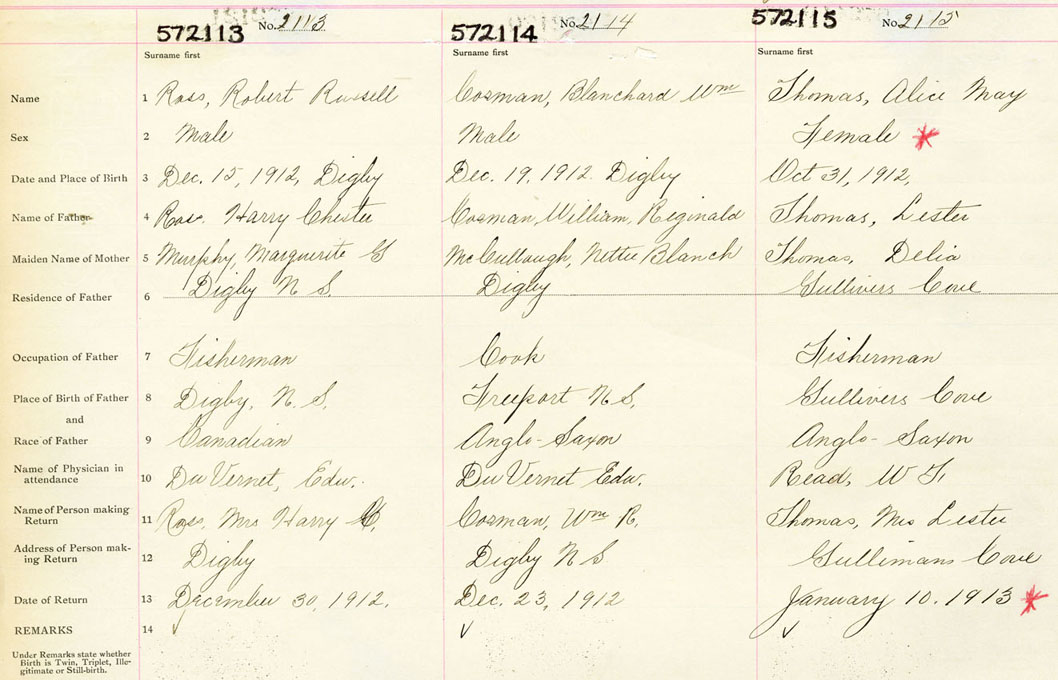 572113 No. 2113 572114 No. 2114 572115 No. 2115
Surname first Surname first Surname first
Name 1 Ross, Robert Russell Cosman, Blanchard Wm Thomas, Alice May
Sex 2 Male Male Female
Date and Place of Birth 3 Dec. 15, 1912, Digby Dec. 19, 1912. Digby Oct 31, 1912,
Name of Father 4 Ross, Harry Chester Cosman, William, Reginald Thomas, Lester
Maiden Name of Mother 5 Murphy, Marguerite G McCullaugh, Nettie Blanch Thomas, Delia
Residence of Father 6 Digby N S. Digby Gullivers Cove
Occupation of Father 7 Fisherman Cook Fisherman
Place of Birth of Father 8 Digby, N. S. Freeport N S. Gullivers Cove
and
Race of Father 9 Canadian Anglo-Saxon Anglo-Saxon
Name of Physician in
attendance 10 Du Vernet, Edw. Du Vernet Edw. Read, W F,
Name of Person making
Return 11 Ross, Mrs Harry C, Cosman, Wm R. Thomas, Mrs Lester
Address of Person mak-
ing Return 12 Digby Digby N S Gullimans Cove
Date of Return 13 December 30, 1912. Dec. 23, 1912 January 10. 1913
REMARKS 14
Under Remarks state whether
Birth is Twin, Triplet, Ille-
gitimate or Still-birth.